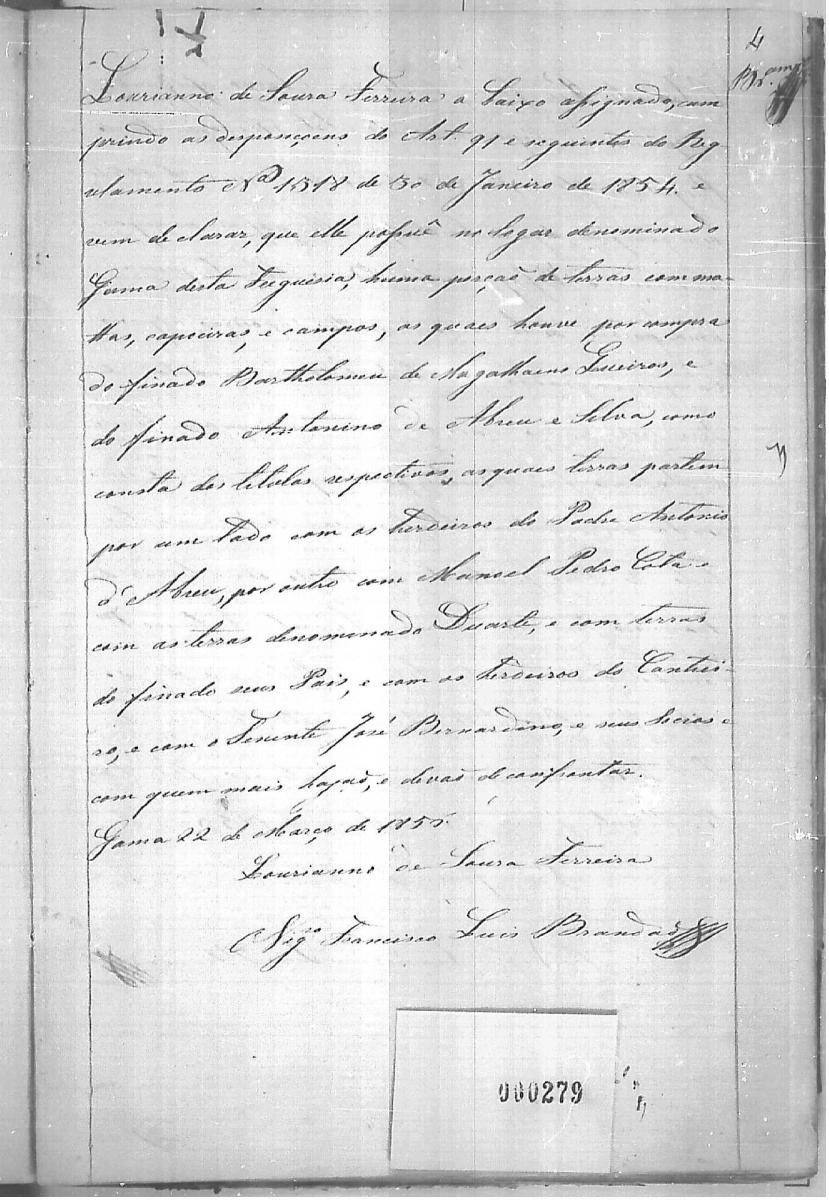 4
Br.amº
Lourianno de Souza Ferreira a baixo assignado, cum
prindo as desponçoens do Art. 91 e seguintes do Reg
ulamento Nº 1318 de 30 de Janeiro de 1854. e
vem declarar, que elle possuê no logar denominado
Gama desta Freguesia, huma porçaõ de terras com ma-
ttas, capoeiras, e campos, as quaes houve por compra
do finado Bartholomeu de Magalhaens Queiros, e
do finado Antonino de Abreu e Silva, como
consta dos titulos respectivos, as quaes terras partem
por um lado com os herdeiros do Padre Antonio
d'Abreu, por outro com Manoel Pedro Cota e
com as terras denominado Duarte, e com terras
do finado seus Pais, e com os herdeiros do Cantei-
ro, e com o Tenente José Bernardino, e seus Socios e
com quem mais hajaõ, e devaõ de confrontar.
Gama 22 de Março de 1855.
Lourianno de Souza Ferreira
O Vigrº Francisco Luis Brandaõ
000279